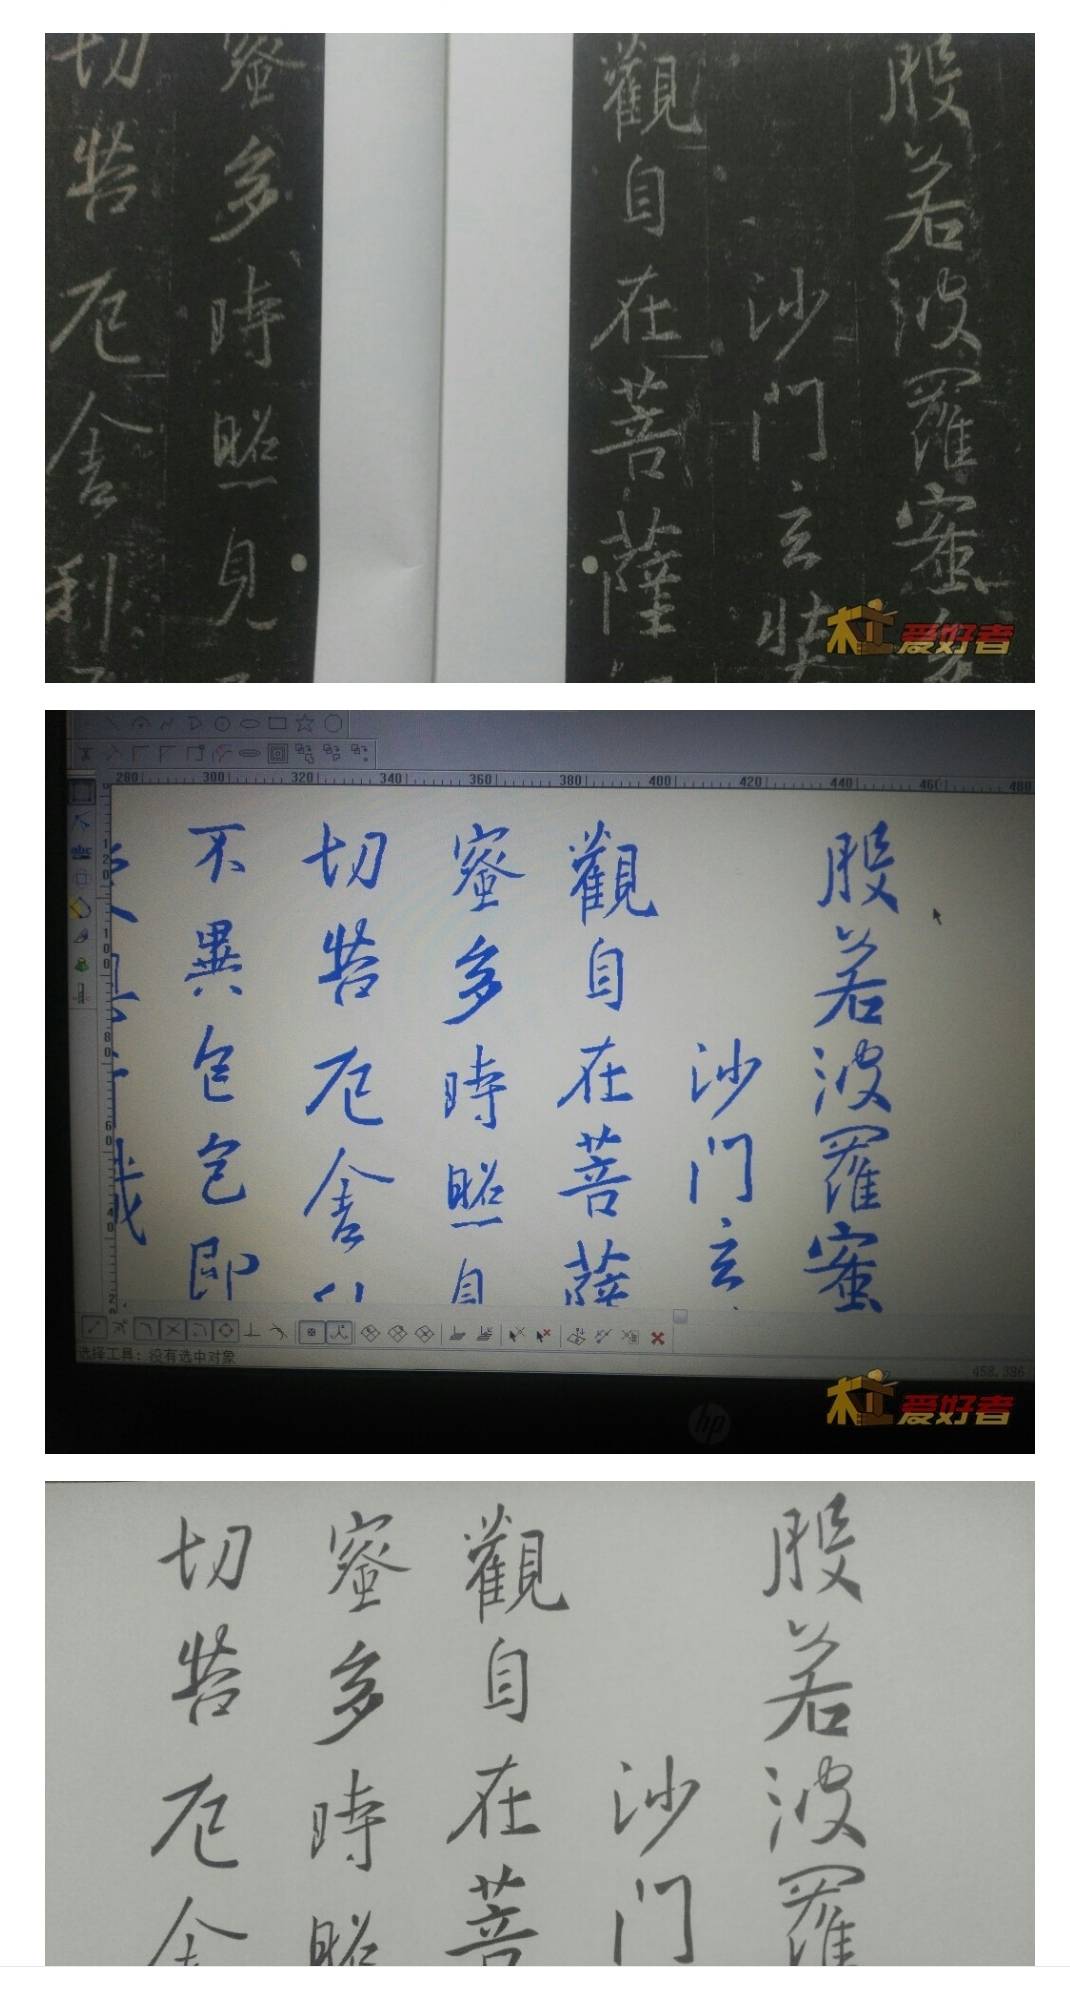 般若波羅蜜多
沙門玄奘
觀自在菩薩
蜜多時照見
切苦厄舍利
木工爱好者
280 300 320 340 360 380 400 420 440 460 480
般若波羅蜜
沙門玄
觀自在菩薩
蜜多時照見
切苦厄舍
不異色色即
选择工具: 没有选中对象
hp
木工爱好者
般若波羅
沙門
觀自在菩
蜜多時照
切苦厄舍